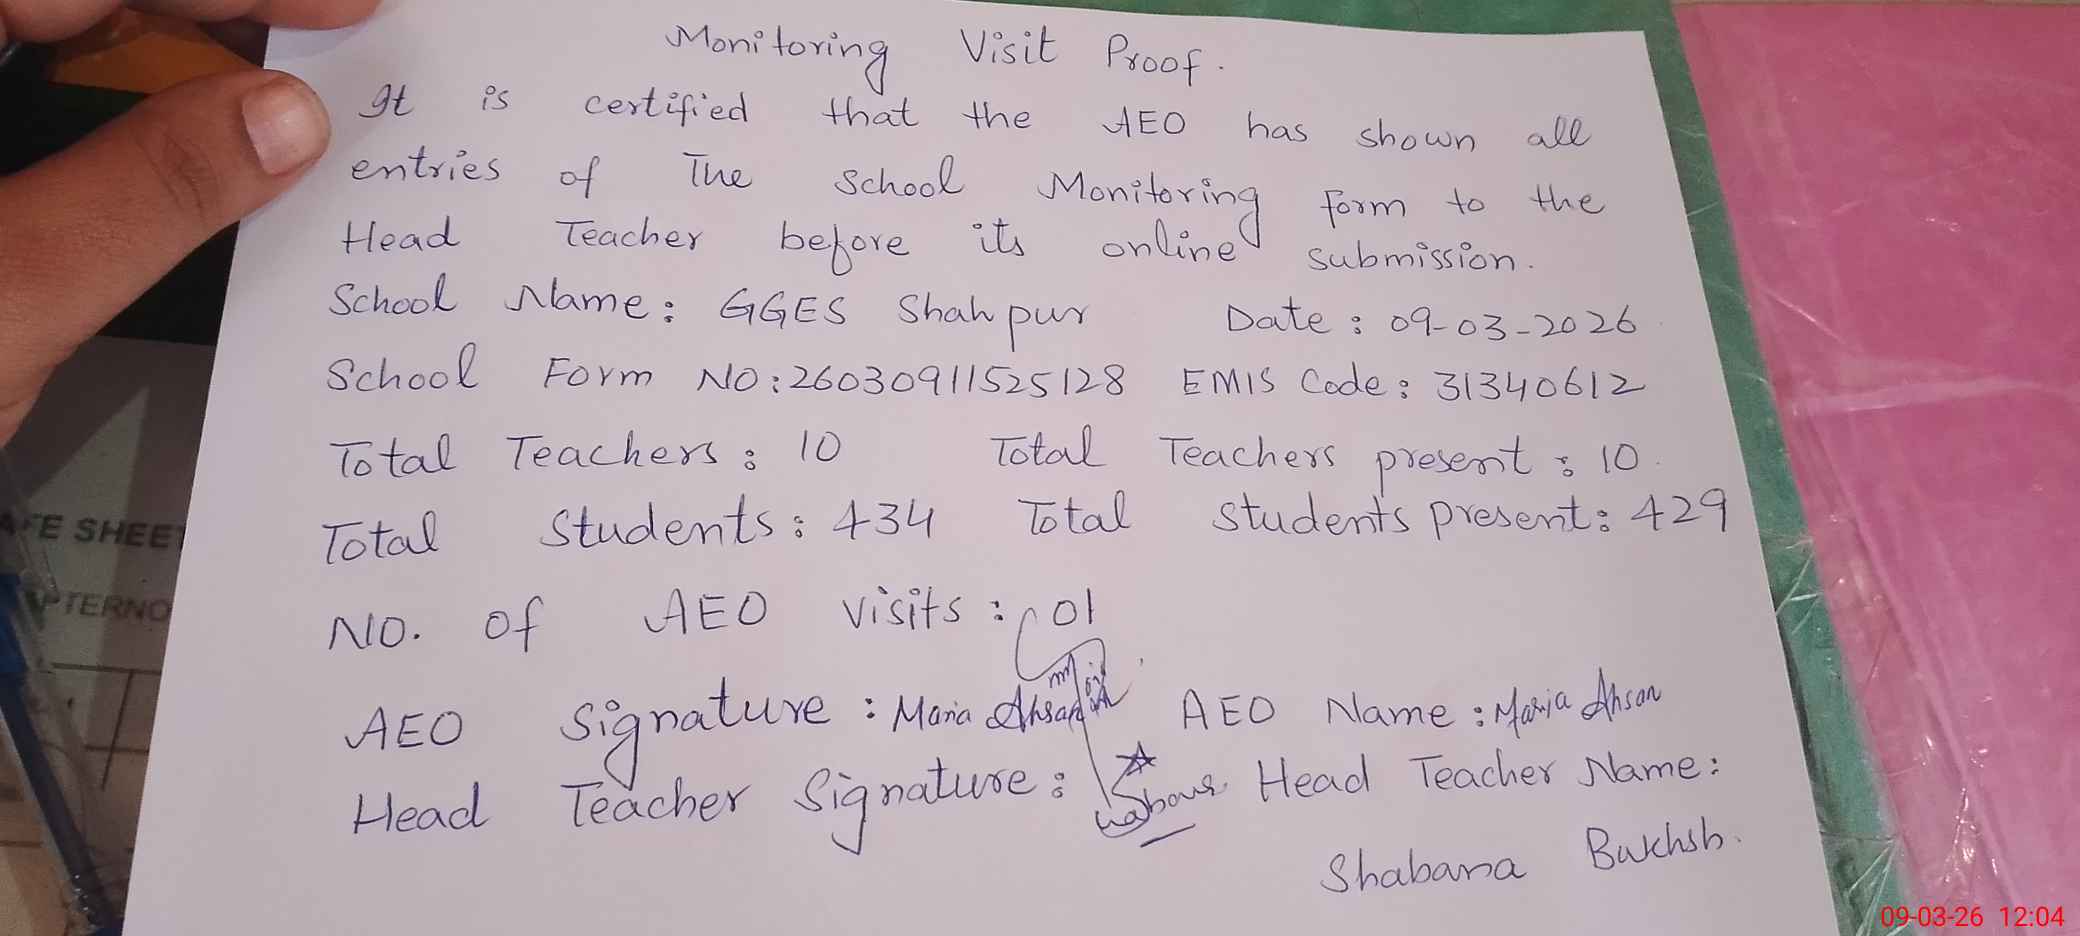 Monitoring Visit Proof.
It is certified that the AEO has shown all
entries of The School Monitoring form to the
Head Teacher before its online submission.
School Name: GGES Shahpur Date: 09-03-2026
School Form NO: 26030911525128 EMIS Code: 31340612
Total Teachers: 10 Total Teachers present: 10.
Total Students: 434 Total Students present: 429
NO. of AEO visits: 01
AEO Signature: Maria Ahsan AEO Name: Maria Ahsan
Head Teacher Signature: Head Teacher Name:
Shabana Bukhsh.
AFE SHEET
APTERNO
09-03-26 12:04